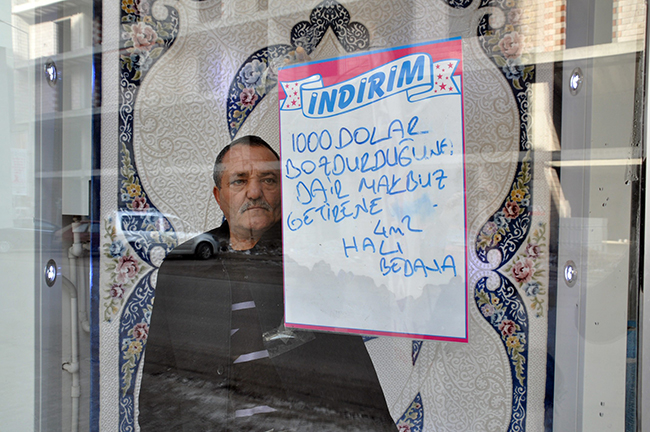 İNDİRİM
1000 DOLAR
BOZDURDUĞUNE
DAİR MAKBUZ
GETİRENE
4m2
HALI
BEDAVA